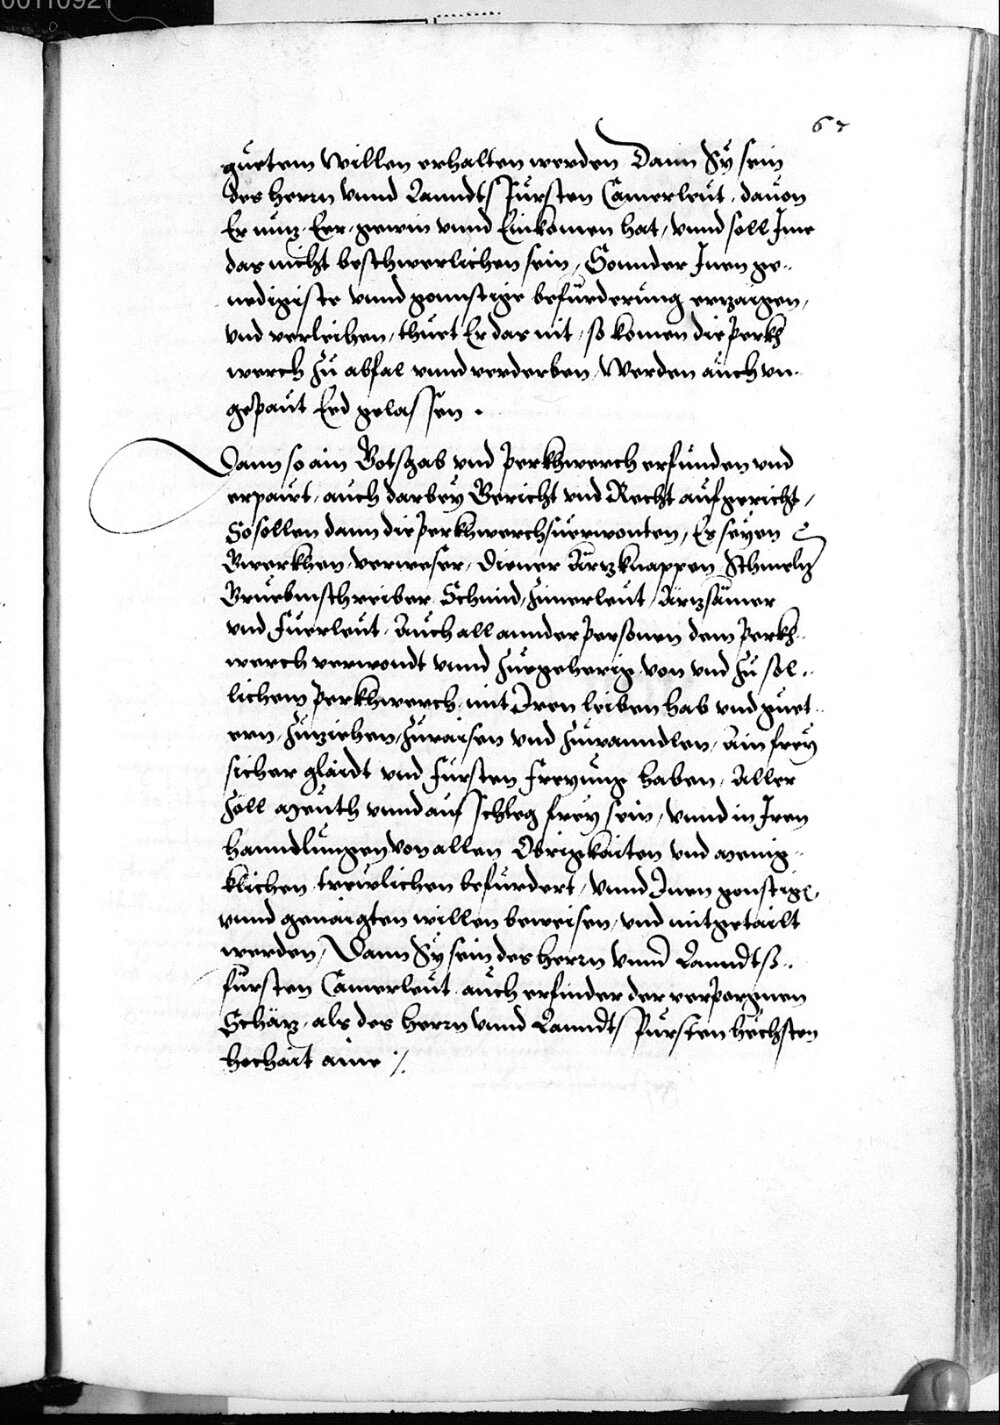 00110921
67
guetem willen erhalten werden Dann Sy sein
des herrn vnnd Lanndts Fürsten Camerleut, dauon
Er nuz, Eer, gewin vnnd Einkomen hat, vnnd soll Ime
das nicht beschwerlichen sein, Sonnder Inen ge-
nedigiste vnnd gonnstige befürderung erzaigen,
vnd verleihen, thuet Er das nit, so komen die Perkh
werch zu abfal vnnd verderben, Werden auch vn-
gepaut Eed gelassen.
Dann so ain Gotsgab vnd Perkhwerch erfunden vnd
erpawt, auch darbey Gericht vnd Recht aufgericht,
So sollen dann die Perkhwerchsverwonten, Es seyen
Gwerkhen, verweser, Diener Ärzknappen Schmelzer
Gruebmschreiber Schmid, Zimerleut, Ärzsämer
vnd Fuerleut, Auch all annder Personen dem Perkh-
werch verwondt vnnd zuegeherig von vnd zu sol-
lichem Perkhwerch mit Iren leiben hab vnd guet-
ern, zuziehen, zuraisen vnd zuwanndlen, Ain frey
sicher glaidt vnd Fürsten Freyung haben, Aller
Zoll Meuth vnnd aufschleg frey sein, vnnd in Iren
hanndlungen von allen Obrigkaiten vnd menig-
klichen trewlichen befürdert, vnnd Inen gonstige,
vnnd genaigten willen beweisen, vnd mitgetailt
werden, Dann Sy sein des herrn vnnd Lanndts-
fürsten Camerleut auch erfinder der verporgnen
Schäz, als des herrn vnnd Lanndts Fürsten höchsten
hochait aine